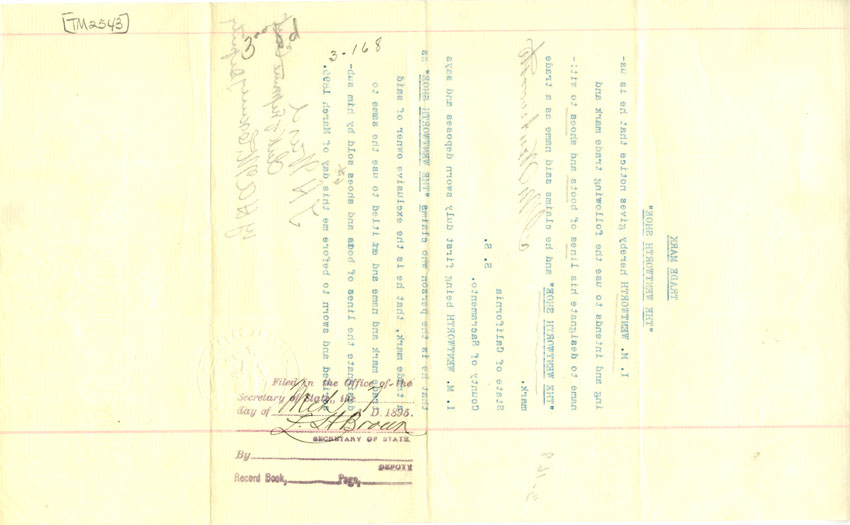 [TM2543]
3-168
Filed in the Office of the
Secretary of State, the
day of Mch A. D. 1895.
L. H. Brown
SECRETARY OF STATE.
By
DEPUTY
Record Book, Page,
TRADE MARK
"THE WENTWORTH SHOE"
I. M. WENTWORTH hereby gives notice that he is us-
ing and intends to use the following trade mark and
name to designate his lines of boots and shoes to wit:-
"THE WENTWORTH SHOE" and he claims said name as a trade
mark.
I M Wentworth
State of California
S. S.
County of Sacramento.
I. M. WENTWORTH being first duly sworn deposes and says
that he is the person who claims "THE WENTWORTH SHOE" as
a trade mark, that he is the exclusive owner of said
trade mark and name and to use the same to
designate the lines of boots and shoes sold by him sub-
scribed and sworn to before me this day of March 1895.